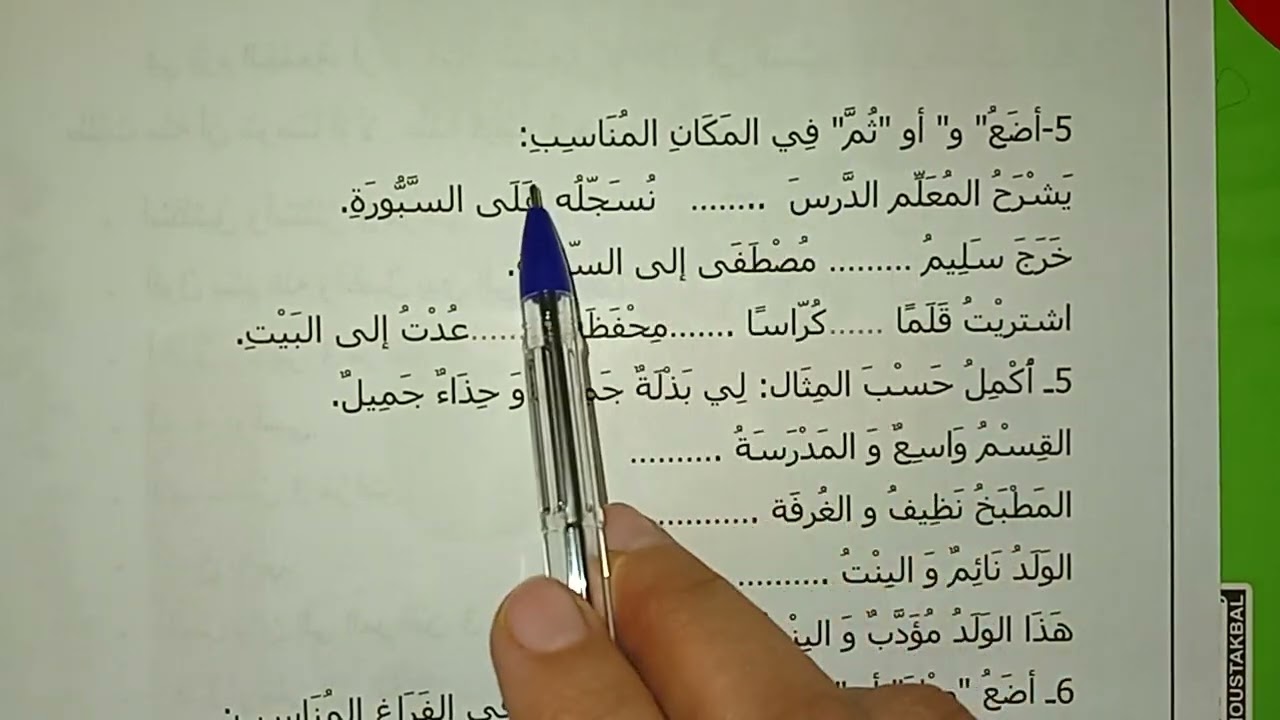 5-أضَعُ" و" أو "ثُمَّ" فِي المَكَانِ المُنَاسِبِ:
يَشْرَحُ المُعَلِّم الدَّرسَ ........ نُسَجّلُه السَّبُّورَةِ.
خَرَجَ سَلِيمُ ......... مُصْطَفَى إلى
اشتريْتُ قَلَمًا ......كُرّاسًا .......مِحْفَظَ ......عُدْتُ إلى البَيْتِ.
5ـ أكْمِلُ حَسْبَ المِثَال: لِي بَذْلَةٌ وَ حِذَاءٌ جَمِيلٌ.
القِسْمُ وَاسِعٌ وَ المَدْرَسَةُ ..........
المَطْبَخُ نَظِيفُ و الغُرفَة ...........
الوَلَدُ نَائِمٌ وَ البِنْتُ ..........
هَذَا الوَلَدُ مُؤَدَّبٌ وَ
6ـ أضَعُ الفَرَاغِ المُنَاسِبِ:
OUSTAKBAL